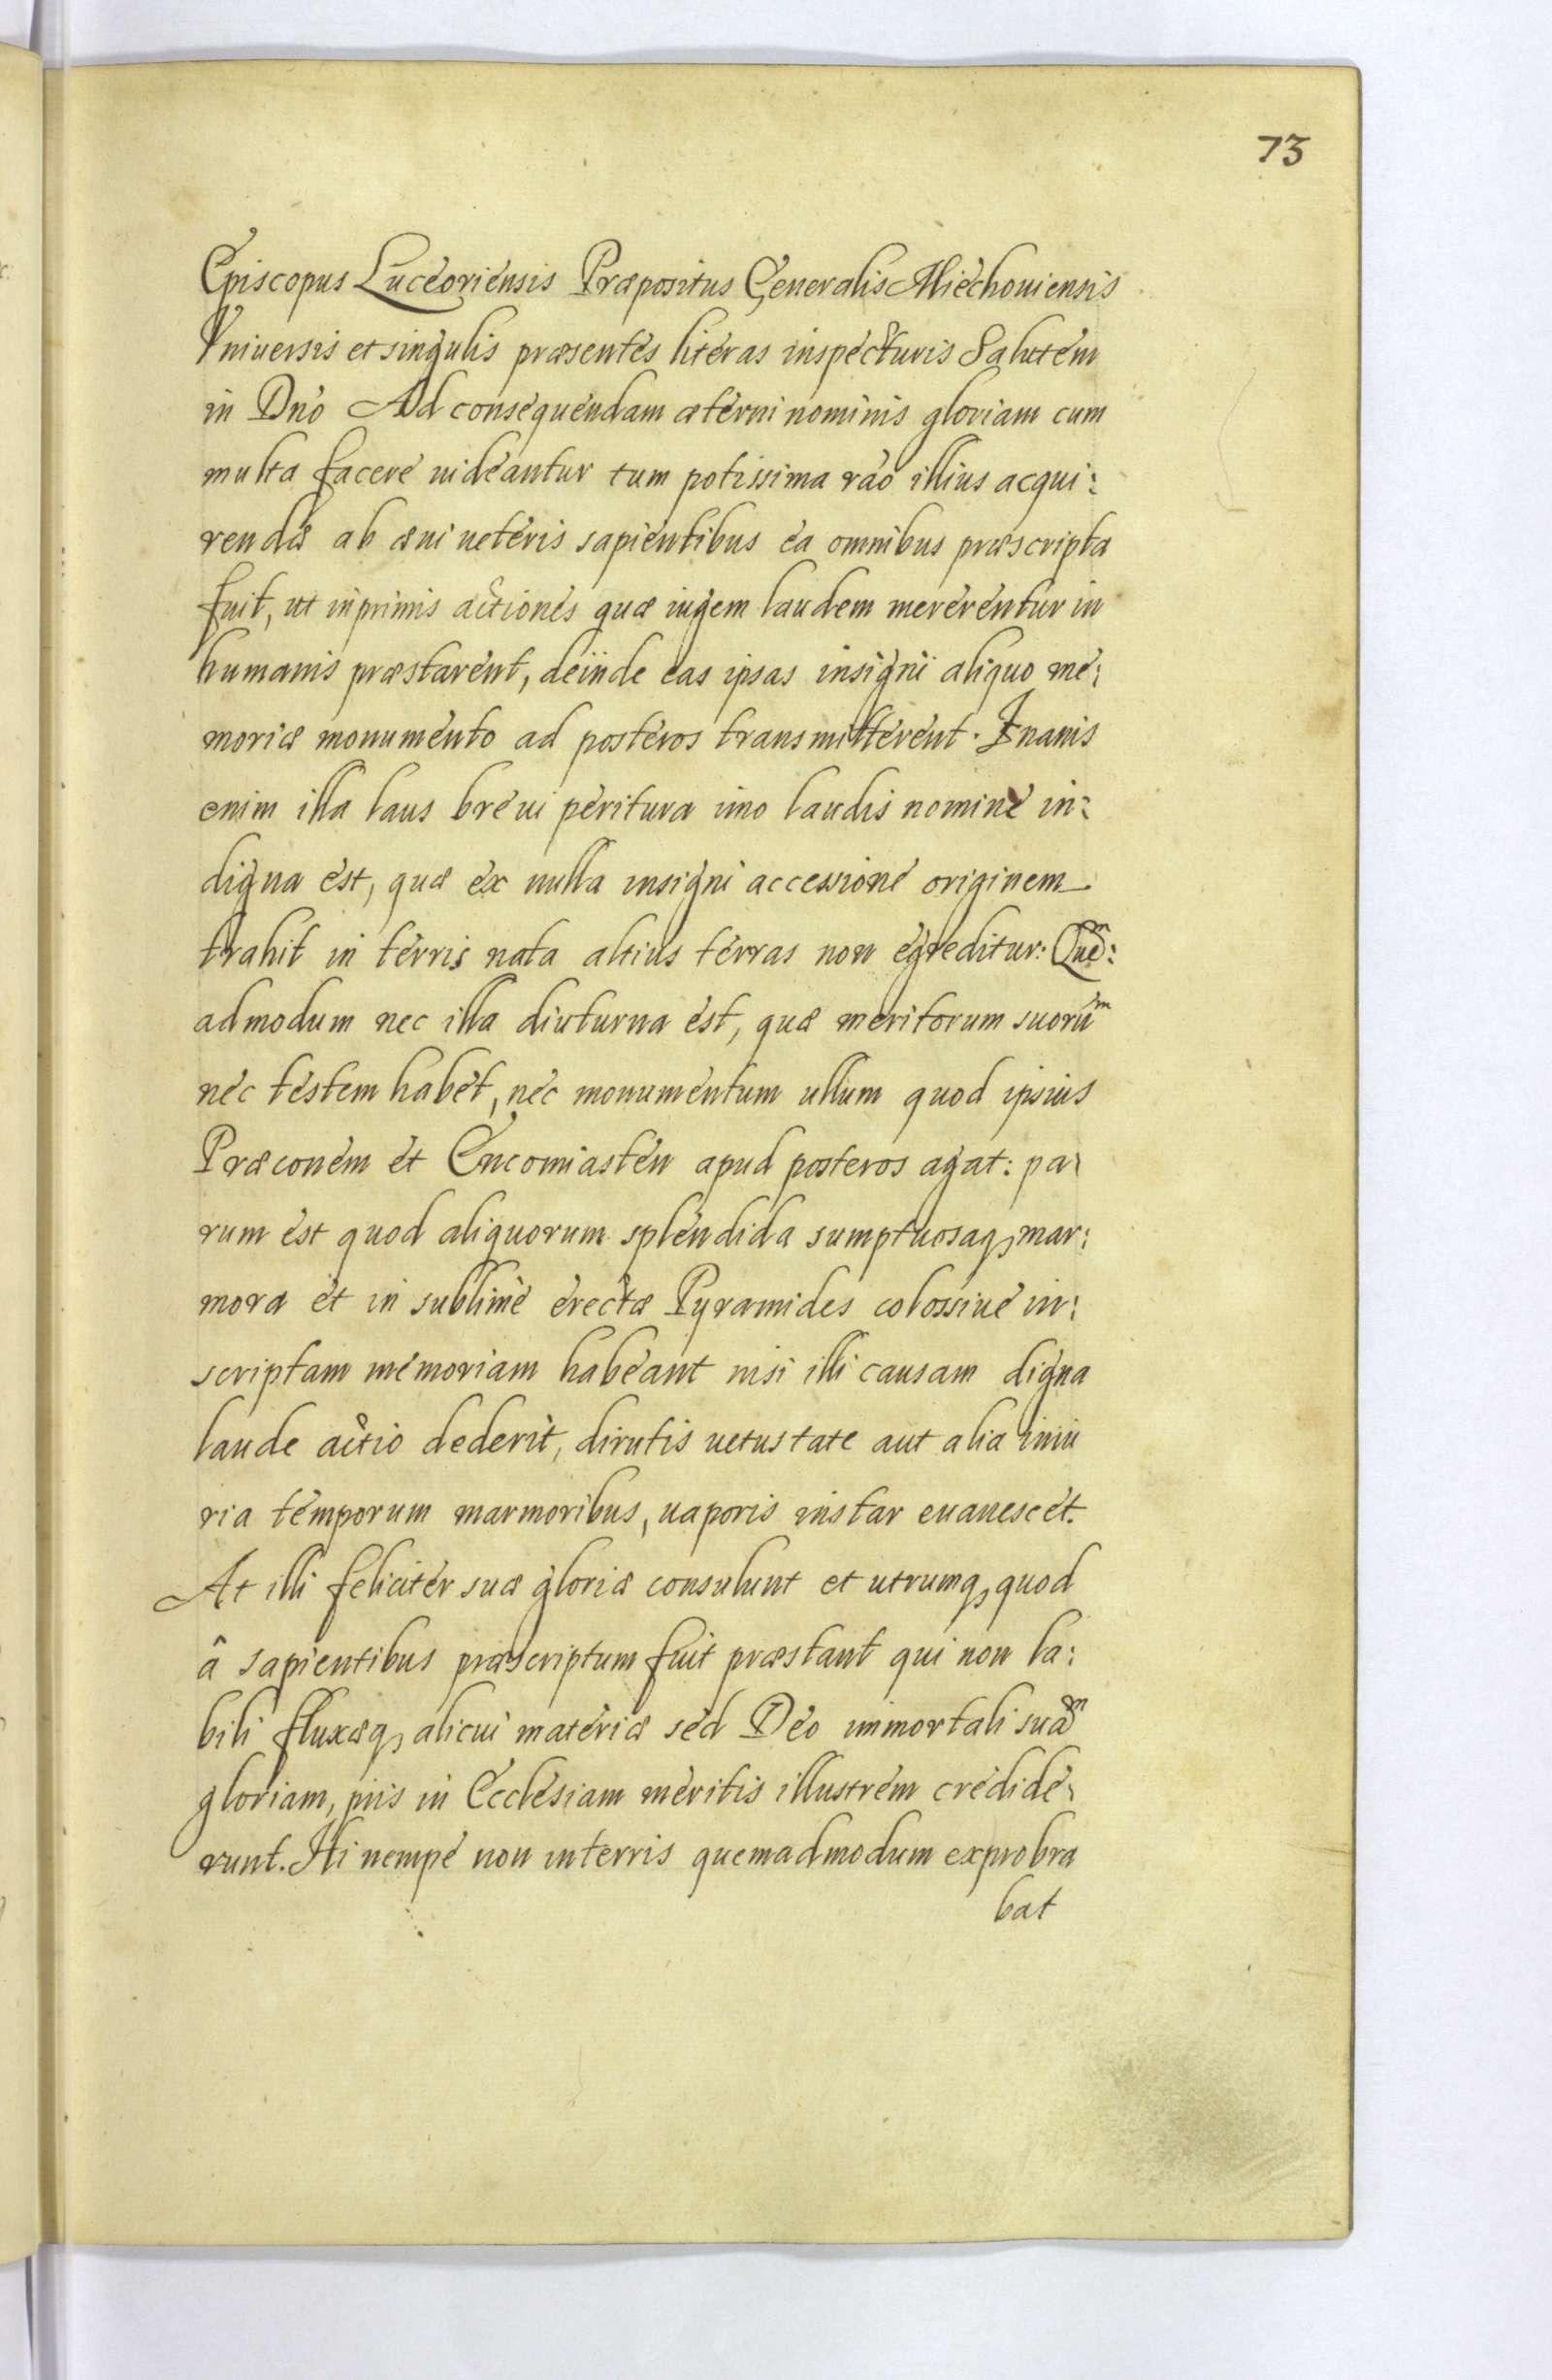 73
Episcopus Luceoriensis Præpositus Generalis Miechouiensis
Vniuersis et singulis præsentes literas inspecturis Salutem
in Dno Ad consequendam æterni nominis gloriam cum
multa facere uideantur tum potissima rao illius acqui:
rendæ ab æui ueteris sapientibus ea omnibus præscripta
fuit, ut inprimis actiones quæ iugem laudem mererentur in
humanis præstarent, deinde eas ipsas insigni aliquo me:
moriæ monumento ad posteros transmitterent. Inanis
enim illa laus breui peritura imo laudis nomine in:
digna est, quæ ex nulla insigni accessione originem
trahit in terris nata altius terras non egreditur: Quem:
admodum nec illa diuturna est, quæ meritorum suorum
nec testem habet, nec monumentum ullum quod ipsius
Præconem et Encomiasten apud posteros agat: pa:
rum est quod aliquorum splendida sumptuosaq, mar:
mora et in sublime erectæ Pyramides colossiue in:
scriptam memoriam habeant nisi illi causam digna
laude actio dederit, dirutis uetustate aut alia iniu
ria temporum marmoribus, uaporis instar euanescet.
At illi feliciter suæ gloriæ consulunt et utrumq, quod
â sapientibus præscriptum fuit præstant qui non la:
bili fluxæq, alicui materiæ sed Deo immortali suam
gloriam, piis in Ecclesiam meritis illustrem credide:
runt. Hi nempe non in terris quemadmodum exprobra
bat